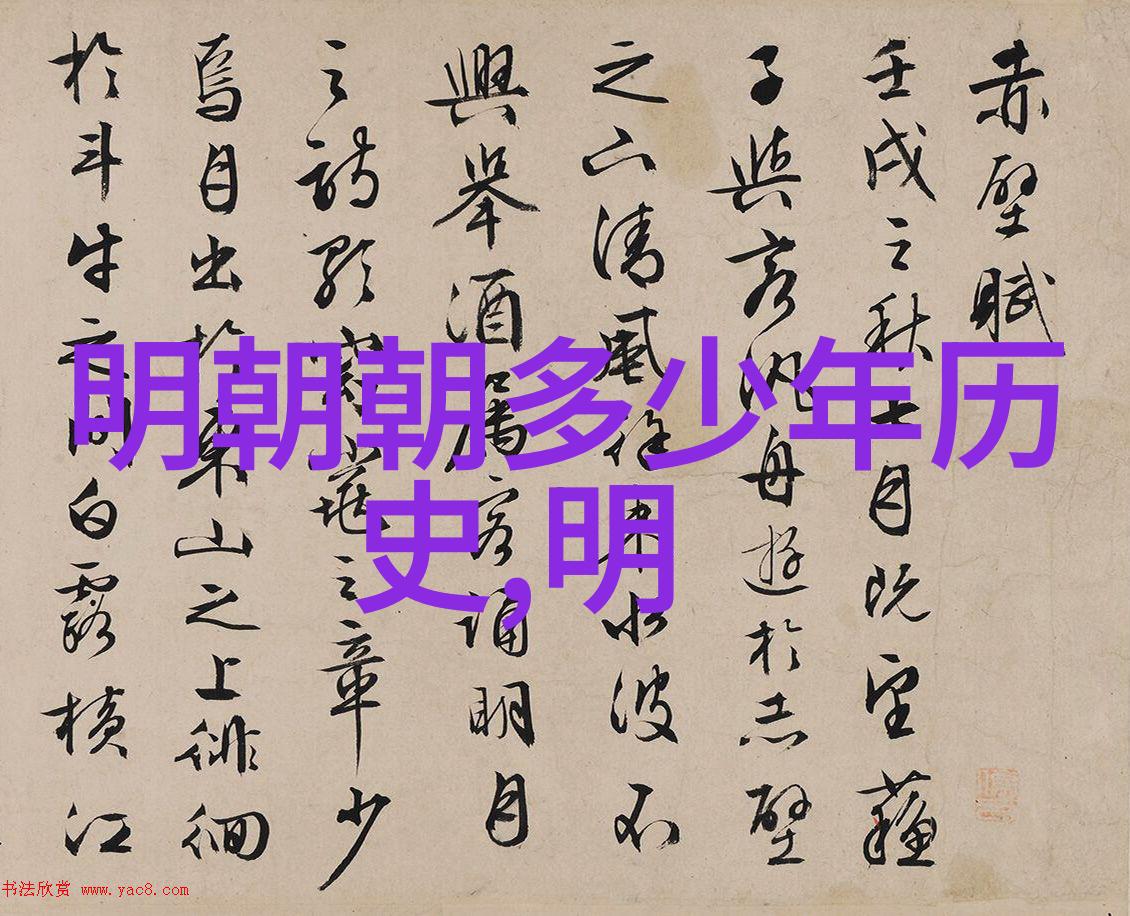 赤壁賦
壬戌之秋七月既望蘇
子與客泛舟遊於赤壁
之下清風徐來水波不
興舉酒屬客誦明月
之詩歌窈窕之章少
焉月出於東山之上徘徊
於斗牛之間白露橫江
明朝朝多少年历
史,明
书法欣赏 www.yac8.com